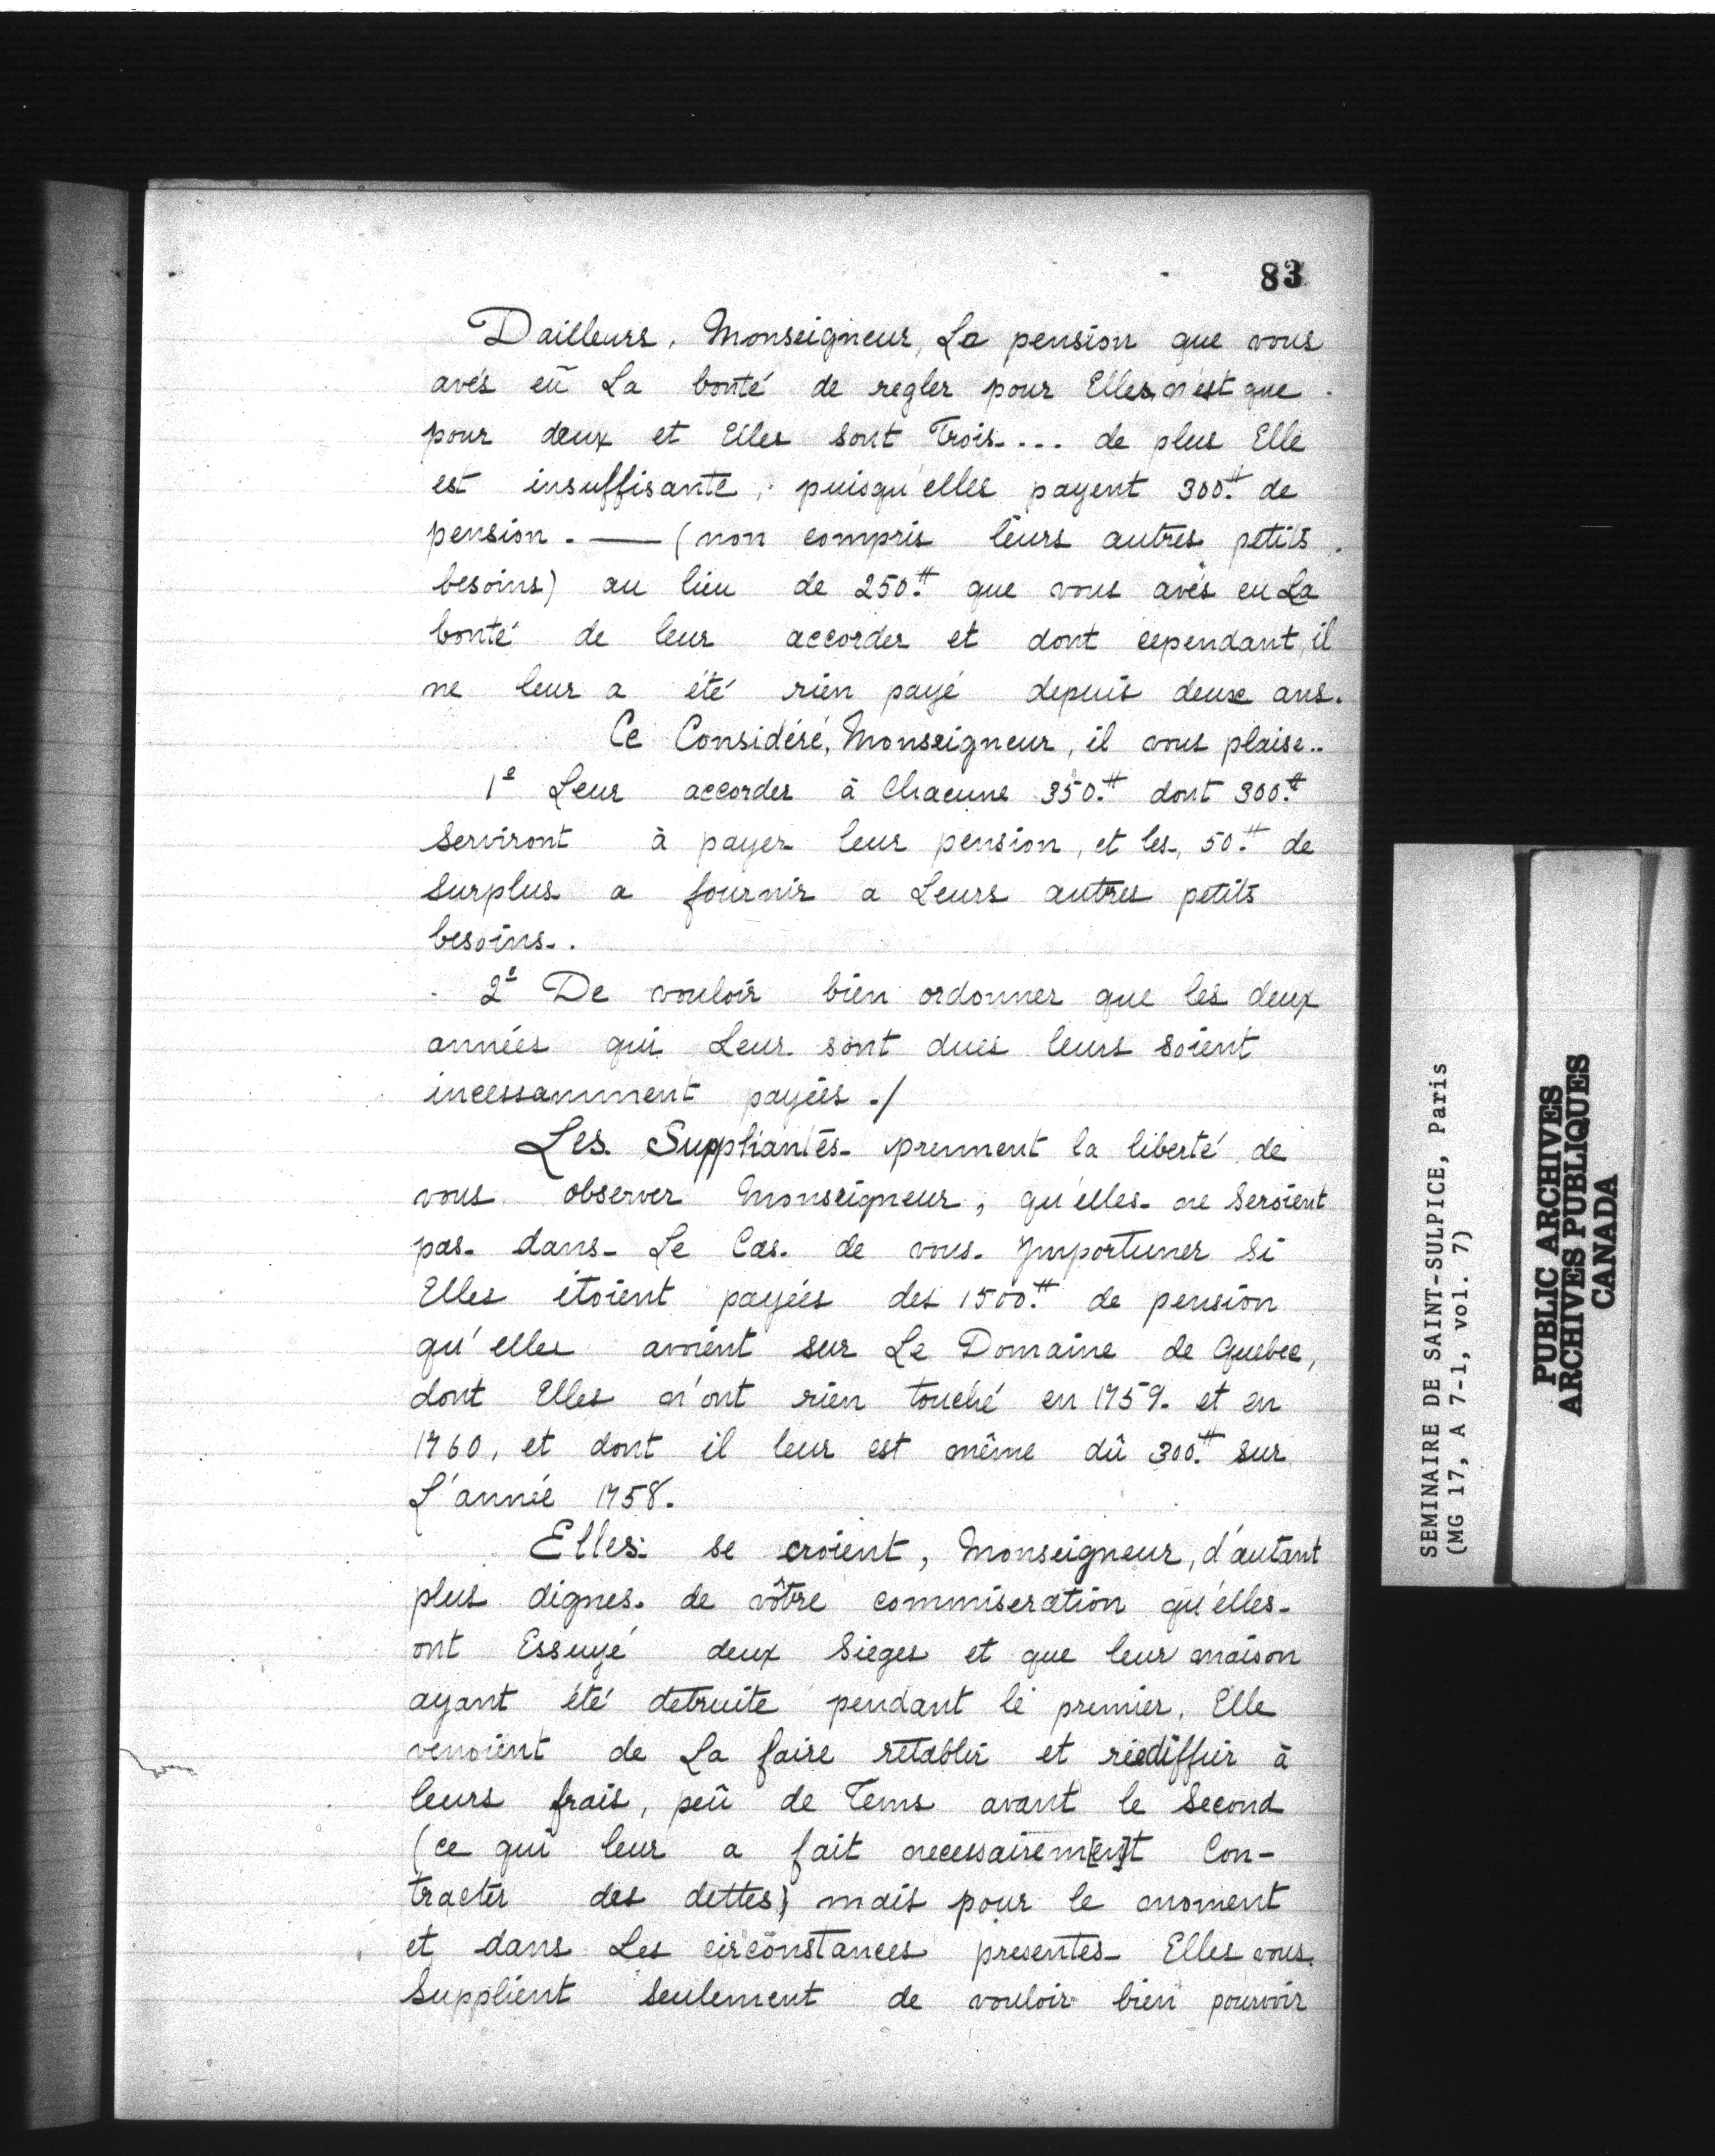 83
Dailleurs, Monseigneur, La pension que vous
avés eû La bonté de regler pour Elles n'est que
pour deux et Elles sont Trois.... de plus Elle
est insuffisante, puisqu'elles payent 300.ᵗᵗ de
pension. — (non compris leurs autres petits
besoins) au lieu de 250.ᵗᵗ que vous avés eu La
bonté de leur accorder et dont cependant, il
ne leur a été rien payé depuis deux ans.
Ce Considéré, Monseigneur, il vous plaise..
1º Leur accorder à Chacune 350.ᵗᵗ dont 300.ᵗᵗ
Serviront à payer leur pension, et les, 50.ᵗᵗ de
Surplus a fournir a Leurs autres petits
besoins..
2º De vouloir bien ordonner que les deux
années qui Leur sont dues leurs soient
incessamment payées ./
Les Suppliantes prennent la liberté de
vous observer Monseigneur, qu'elles ne Seroient
pas dans Le Cas. de vous Ymportuner Si
Elles étoient payées des 1500.ᵗᵗ de pension
qu'elles avoient sur Le Domaine de Quebec,
dont Elles n'ont rien touché en 1759. et en
1760, et dont il leur est même dû 300.ᵗᵗ sur
L'année 1758.
Elles se croient, Monseigneur, d'autant
plus dignes de vôtre commiseration qu'elles
ont Essuyé deux Sieges et que leur maison
ayant été detruite pendant le premier, Elle
venoient de La faire rétablir et réediffier à
leurs frais, peû de Tems avant le Second
(ce qui leur a fait necessairem[en]t Con-
tracter des dettes) mais pour le moment
et dans Les circonstances presentes Elles vous
Supplient Seulement de vouloir bien pourvoir
SEMINAIRE DE SAINT-SULPICE, Paris
(MG 17, A 7-1, vol. 7)
PUBLIC ARCHIVES
ARCHIVES PUBLIQUES
CANADA